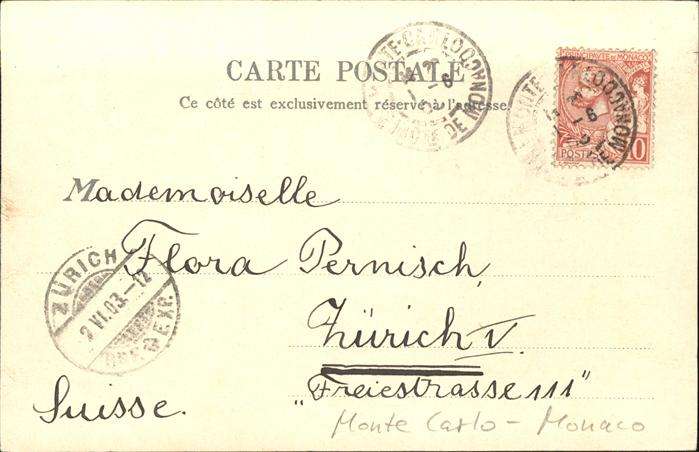 CARTE POSTALE
Ce côté est exclusivement réservé à l'adresse
PRINCIPAUTÉ DE MONACO
POSTES
MONTE-CARLO
Mademoiselle
Flora Pernisch,
Zürich V.
"Freiestrasse 111"
Suisse.
ZÜRICH
2 VI.03.-12
Monte Carlo - Monaco